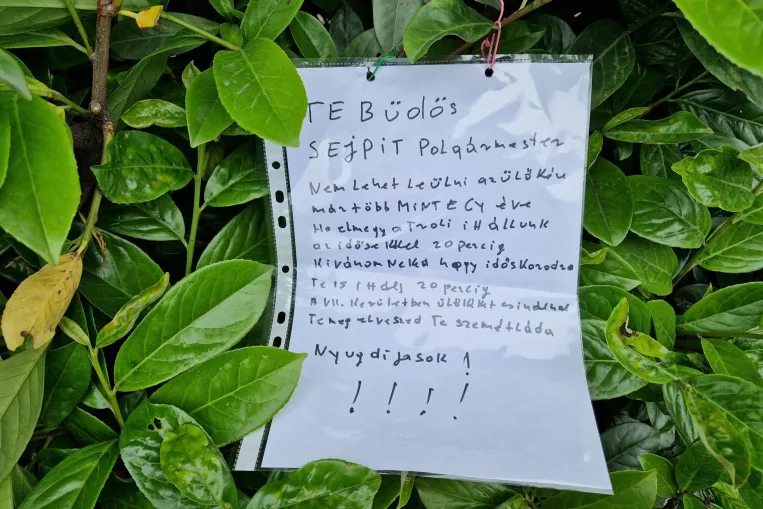 TE BÜDÖS
SEJPIT Polgármester
Nem lehet leülni azülőkére
már több MINT EGY éve
Ha elmegy a Troli itt állunk
az idősekkel 20 percig
Kívánom neked hogy időskorodra
Te is itt állj 20 percig
A VII. kerületben ülőkéket csináltál
Te meg elveszed Te szemétláda
Nyugdíjasok !
! ! ! !